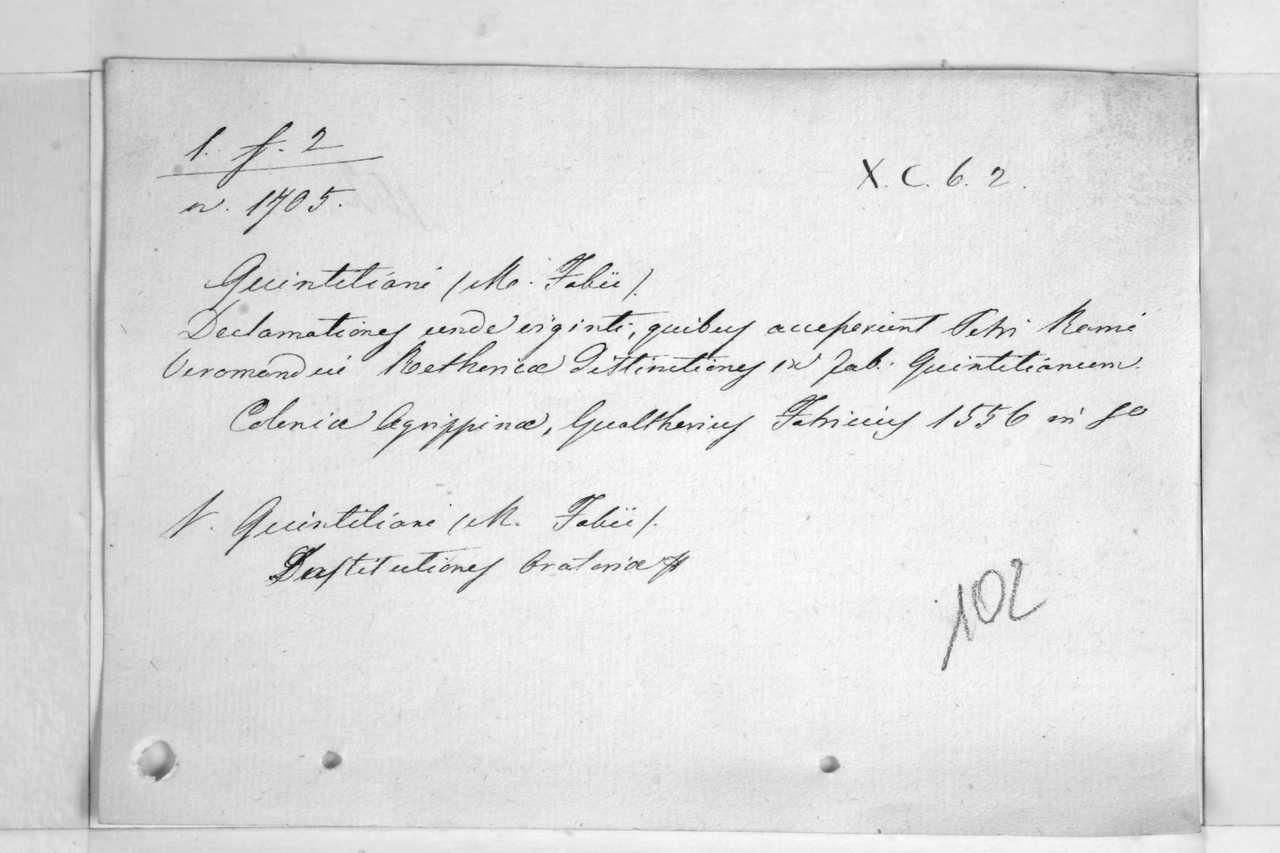 1. f. 2
n. 1705.
X. C. 6. 2.
Quintiliani (M. Fabii).
Declamationes undeviginti, quibus accesserunt Petri Rami
Veromandui Rethoricæ distinctiones in Fab. Quintilianum.
Coloniæ Agrippinæ, Gualtherius Fabricius 1556 in 8º
V. Quintiliani (M. Fabii).
Institutiones Oratoriæ
102